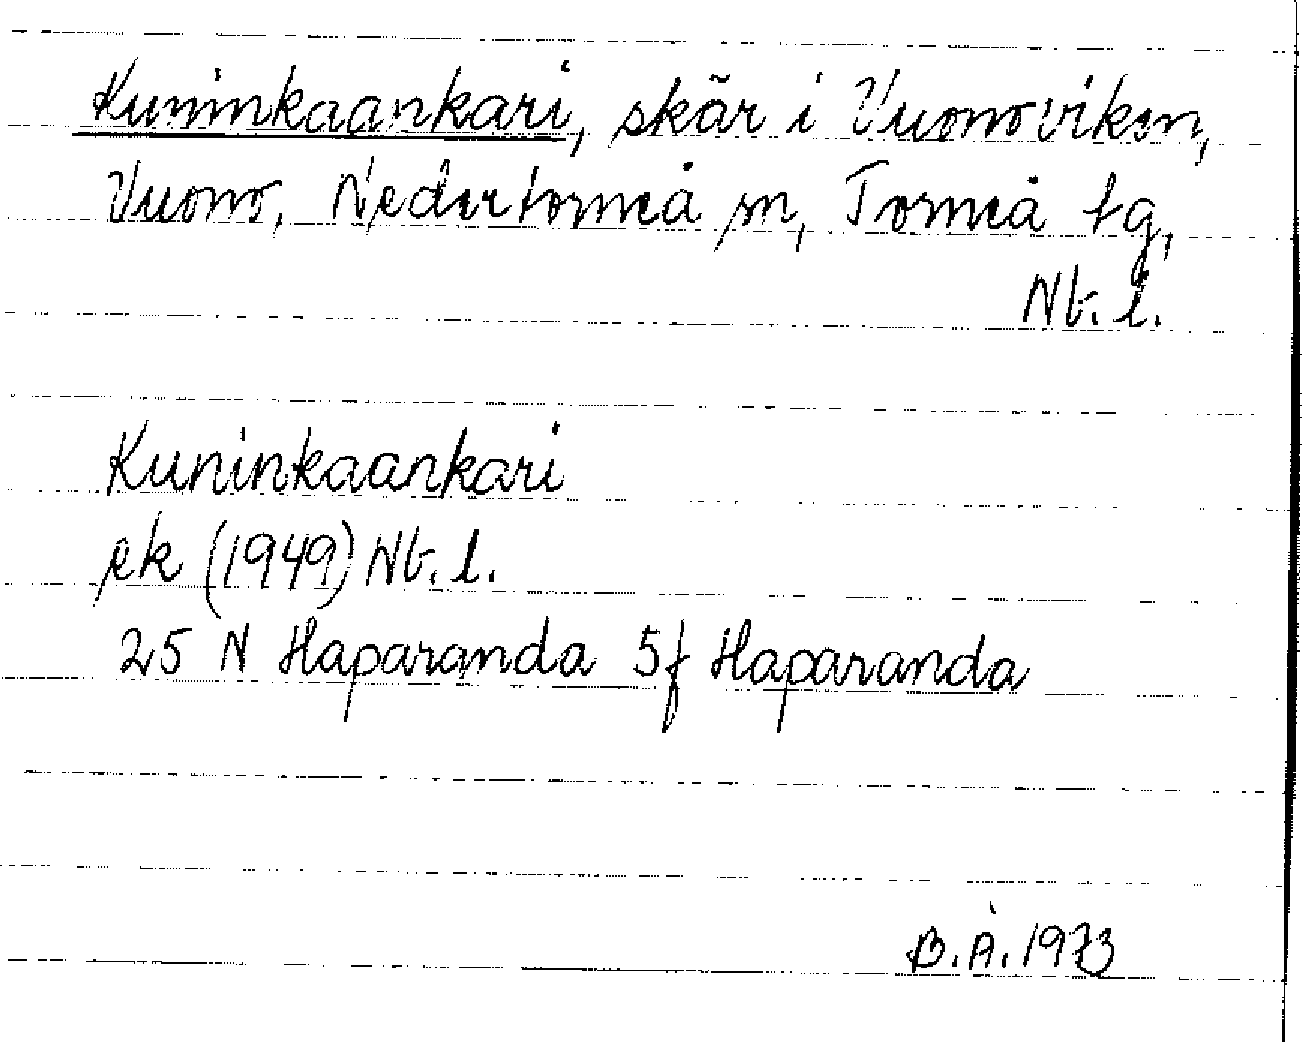 Kuninkaankari, skär i Vuonoviken,
Vuono, Nedertorneå sn, Torneå tg,
Nb. l.
Kuninkaankari
ek (1949) Nb. l.
25 N Haparanda 5f Haparanda
B.Å. 1973